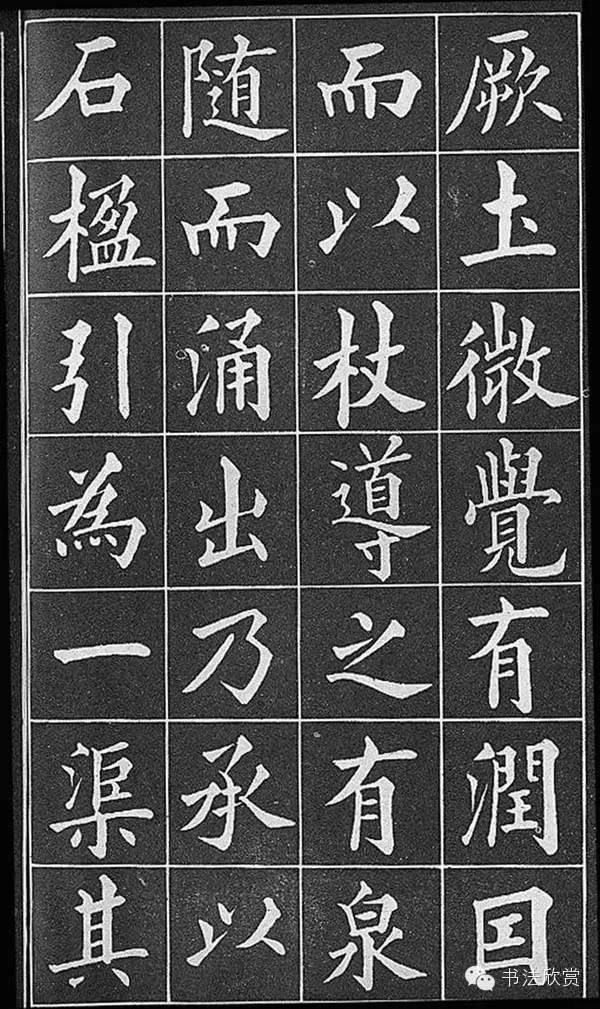 厥土微覺有潤囙
而以杖導之有泉
随而涌出乃承以
石楹引為一渠其
书法欣赏